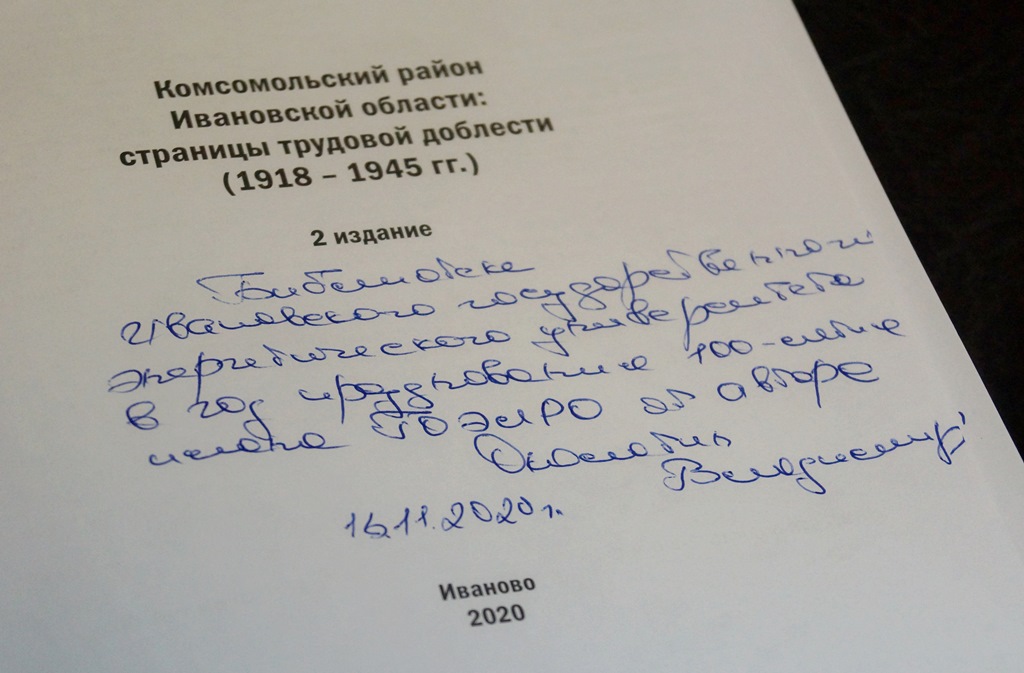 Комсомольский район
Ивановской области:
страницы трудовой доблести
(1918 – 1945 гг.)
2 издание
Библиотеке
Ивановского государственного
энергетического университета
в год празднования 100-летия
плана ГОЭЛРО от автора
Околотин
Владимир
16.11.2020 г.
Иваново
2020